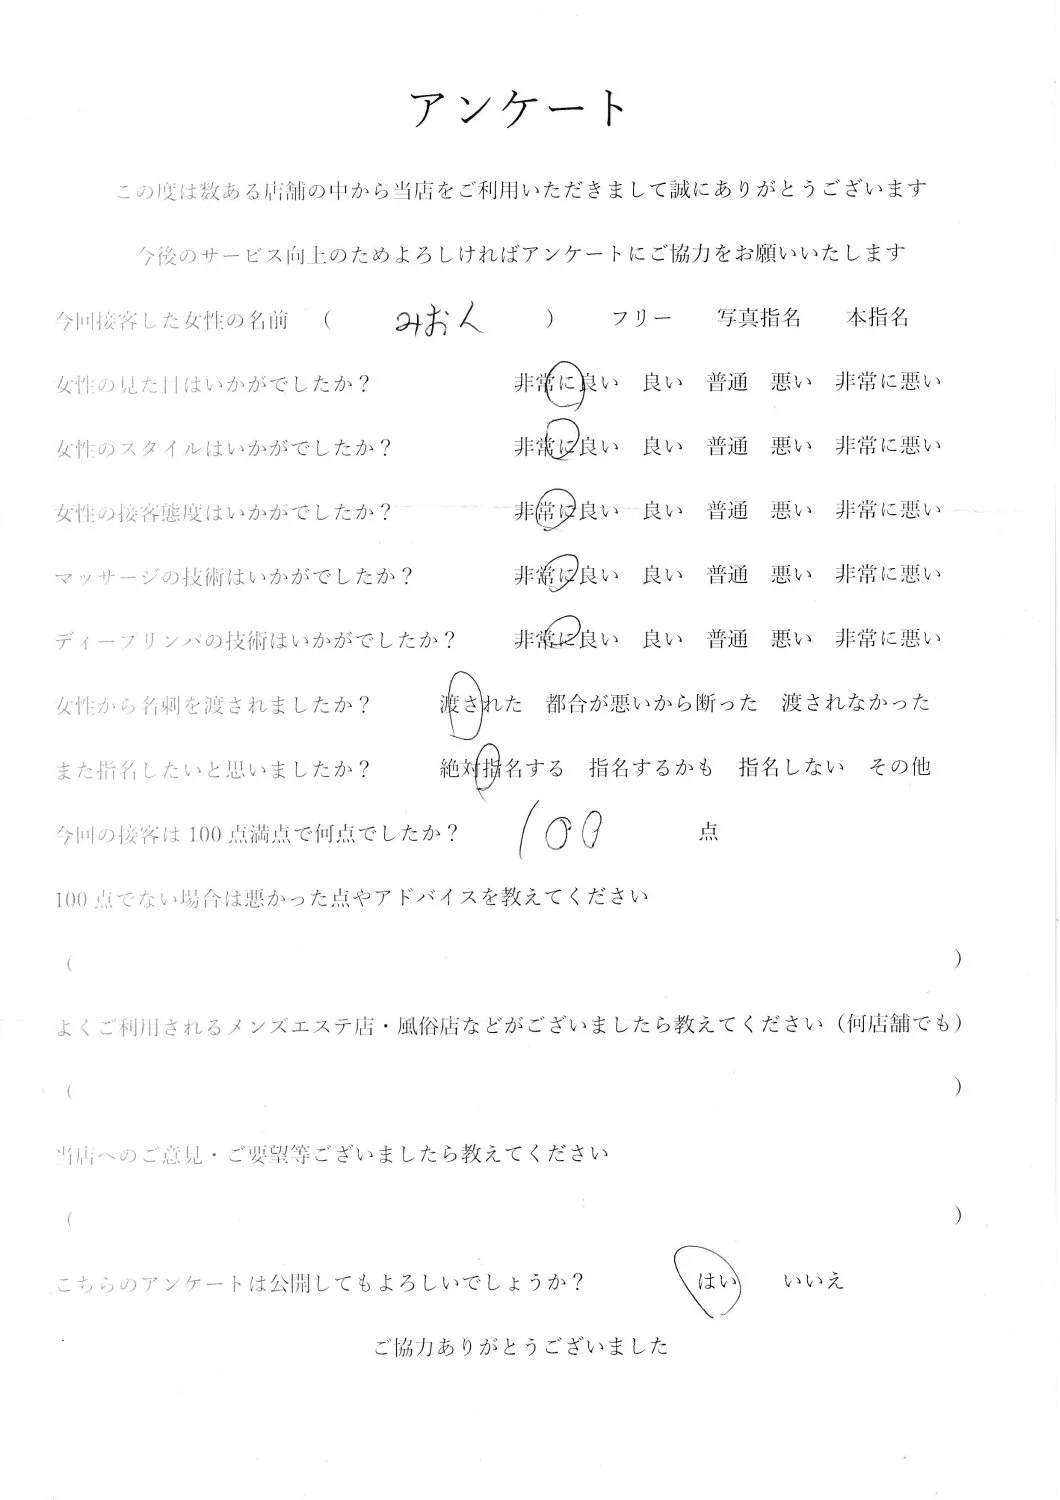 アンケート
この度は数ある店舗の中から当店をご利用いただきまして誠にありがとうございます
今後のサービス向上のためよろしければアンケートにご協力をお願いいたします
今回接客した女性の名前 （ みおん ） フリー 写真指名 本指名
女性の見た目はいかがでしたか？ 非常に良い 良い 普通 悪い 非常に悪い
女性のスタイルはいかがでしたか？ 非常に良い 良い 普通 悪い 非常に悪い
女性の接客態度はいかがでしたか？ 非常に良い 良い 普通 悪い 非常に悪い
マッサージの技術はいかがでしたか？ 非常に良い 良い 普通 悪い 非常に悪い
ディープリンパの技術はいかがでしたか？ 非常に良い 良い 普通 悪い 非常に悪い
女性から名刺を渡されましたか？ 渡された 都合が悪いから断った 渡されなかった
また指名したいと思いましたか？ 絶対指名する 指名するかも 指名しない その他
今回の接客は100点満点で何点でしたか？ 100 点
100点でない場合は悪かった点やアドバイスを教えてください
（ ）
よくご利用されるメンズエステ店・風俗店などがございましたら教えてください（何店舗でも）
（ ）
当店へのご意見・ご要望等ございましたら教えてください
（ ）
こちらのアンケートは公開してもよろしいでしょうか？ はい いいえ
ご協力ありがとうございました